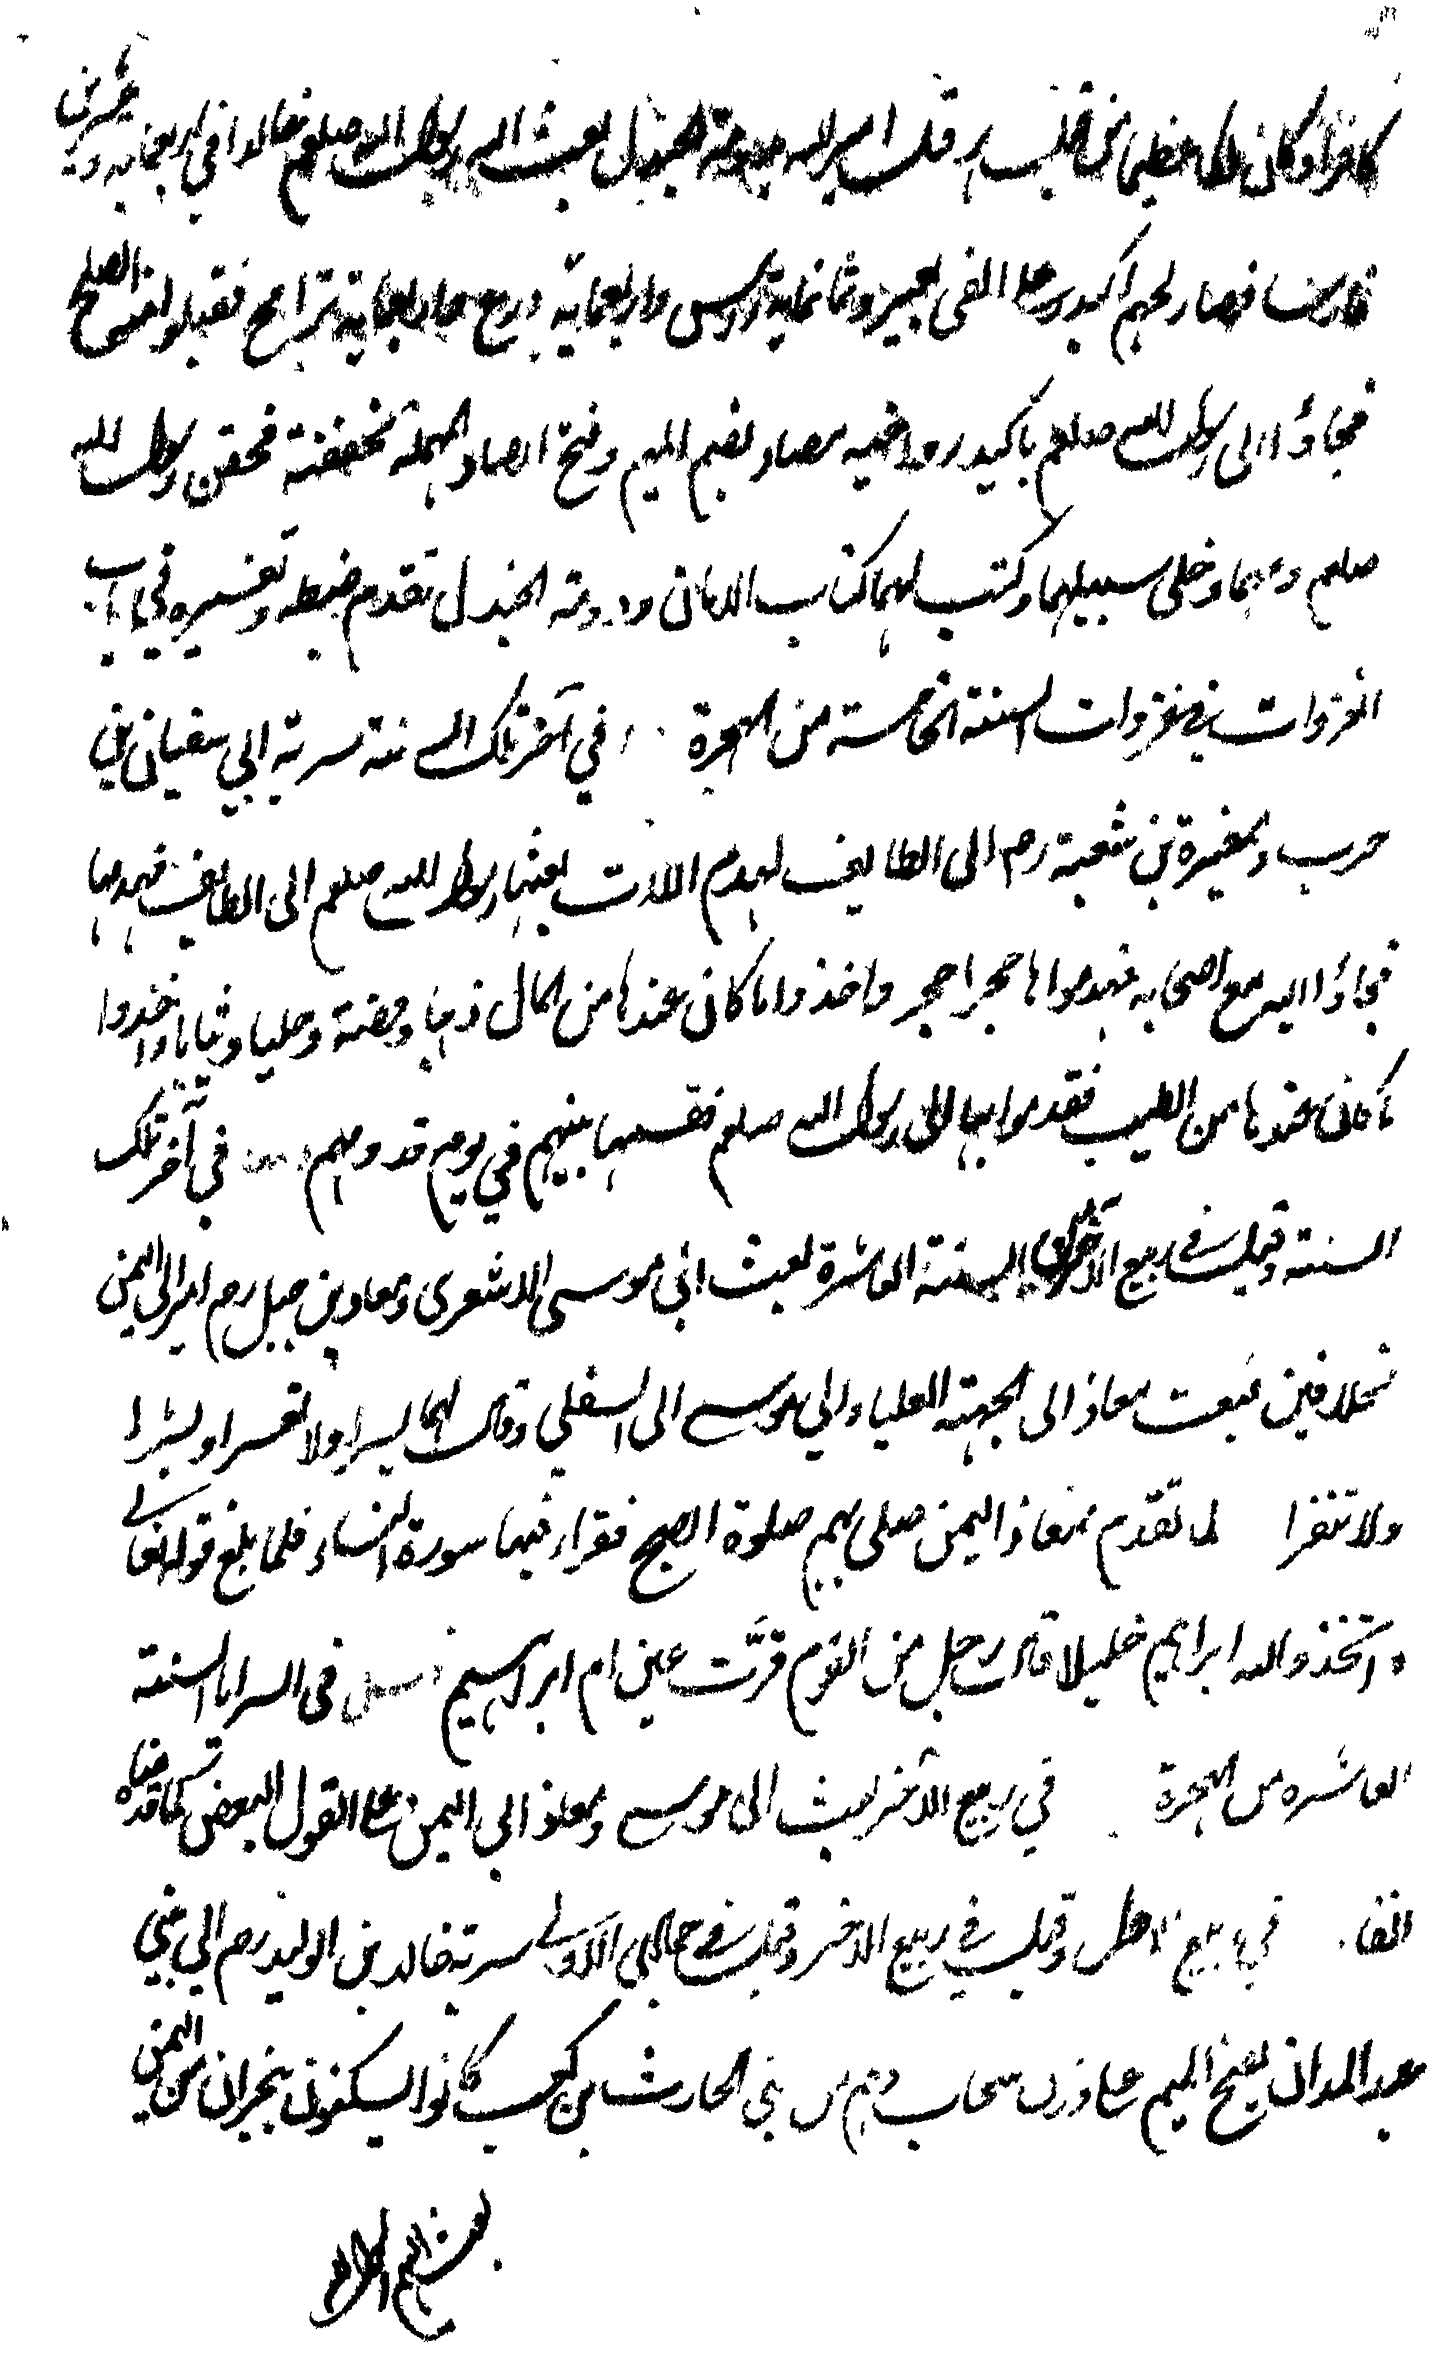 كافرا وكان ملكا عظيما من قبل هرقل اميرا له بدومة الجندل بعث اليه رسول الله صلعم خالدا في اربعماية وعشرين
فارسا فصارلحهم اكيدر على الفي بعير وثمانماية رؤس واربعماية درع واربعماية رمح فقبلوا منه الصلح
فجاؤا الى رسول الله صلعم باكيدر واخيه مصاد بضم الميم وفتح الصاد المهملة مخففة فحقن رسول الله
صلعم دمهما وخلى سبيلهما وكتب لهما كتاب الامان ودومة الجندل تقدم ضبطه وتفسيره في باب
الغزوات في غزوات السنة الخامسة من الهجرة في آخر تلك السنة سرية ابي سفيان بن
حرب ومغيرة بن شعبة رم الى الطايف لهدم اللات بعثهما رسول الله صلعم الى الطايف فهدماها
فجاؤا اليه مع اصحابه فهدموا ها حجرا حجر واخذوا ما كان عندها من المال ذهبا وفضة وحليا وثيابا واخذوا
ما كان عندها من الطيب فقدموا بها الى رسول الله صلعم فقسمها بينهم في يوم قدومهم في آخر تلك
السنة وقيل في ربيع الآخر من السنة العاشرة بعث ابي موسى الاشعرى ومعاذ بن جبل رم الى اليمن
مخلافين فبعث معاذ الى الجهة العليا وابي موسى الى السفلى وقال لهما يسرا ولا تعسرا وبشرا
ولا تنفرا لما تقدم معاذ اليمن صلى بهم صلوة الصبح فقراء فيها سورة النساء فلما بلغ قوله تعالى
واتخذ الله ابراهيم خليلا قال رجل من القوم قرّت عين ام ابراهيم فصل فى السرايا السنة
العاشره من الهجرة في ربيع الآخر بعث ابى موسى ومعاذ الى اليمن على القول البعض كما قدمناه
انفا في ربيع الاول وقيل في ربيع الاخر وقيل في جمادى الاولى سرية خالد بن الوليد رم الى بني
عبد المدان بفتح الميم على وزن سحاب وهم من بني الحارث بن كعب كانوا يسكنون بنجران من اليمن